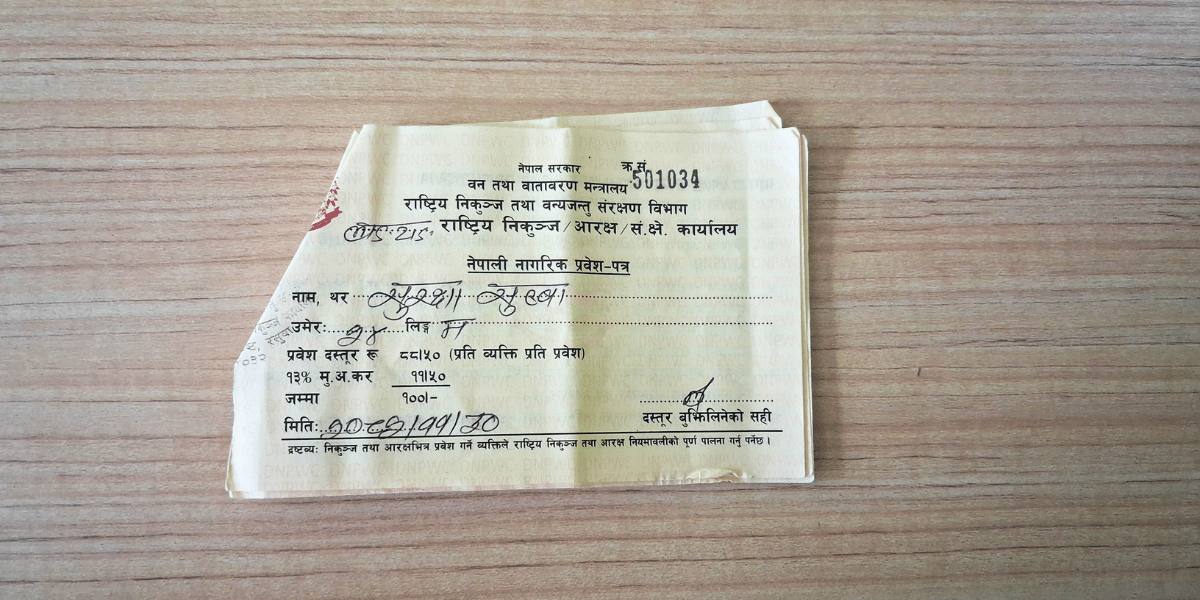 नेपाल सरकार
क्र.सं. 501034
वन तथा वातावरण मन्त्रालय
राष्ट्रिय निकुञ्ज तथा वन्यजन्तु संरक्षण विभाग
राष्ट्रिय निकुञ्ज/आरक्ष/सं.क्षे. कार्यालय
नेपाली नागरिक प्रवेश-पत्र
नाम, थर सुरक्षा सुब्बा
उमेर: २४ लिङ्ग म
प्रवेश दस्तूर रू ८८।५० (प्रति व्यक्ति प्रति प्रवेश)
१३% मु.अ.कर ११।५०
जम्मा १००।-
मिति: /११/३०
दस्तूर बुझिलिनेको सही
द्रष्टव्य: निकुञ्ज तथा आरक्षभित्र प्रवेश गर्ने व्यक्तिले राष्ट्रिय निकुञ्ज तथा आरक्ष नियमावलीको पूर्ण पालना गर्नु पर्नेछ ।
DNPWC